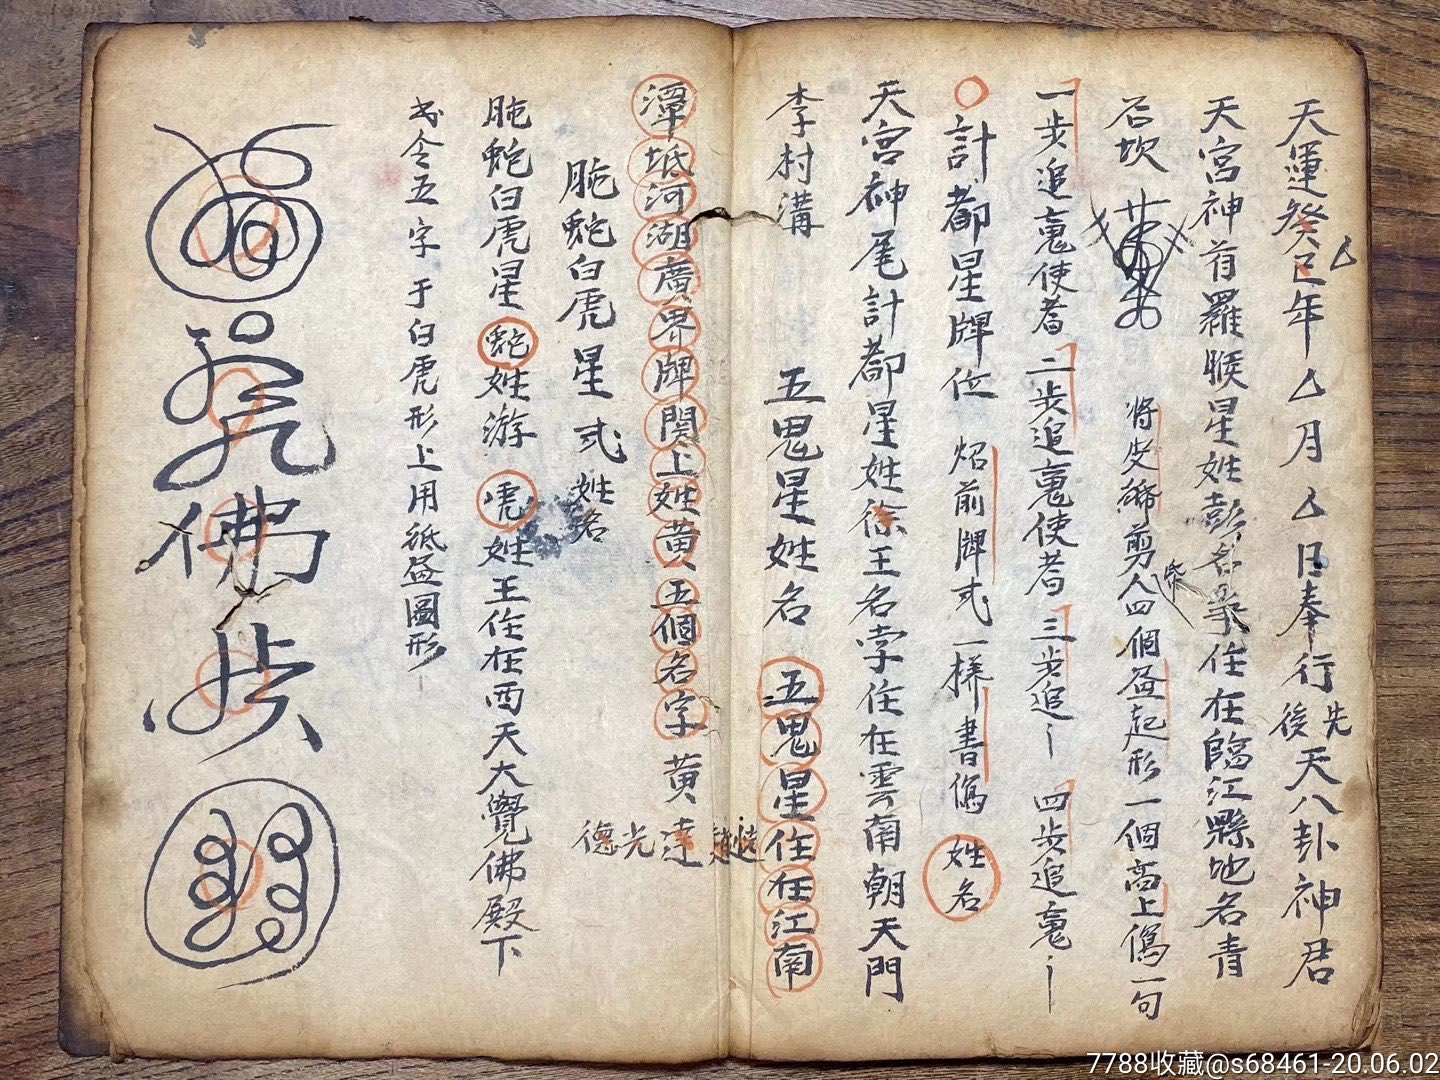 天運癸巳年厶月厶日奉行先後天八卦神君
天宮神首羅睺星姓彭名住在臨江縣地名青
石坎
將皮紙剪人四個盔起形一個高上寫一句
一步追魂使者 二步追魂使者 三步追 四步追魂
計都星牌位 炤前牌式一樣書寫 姓名
天宮神尾計都星姓徐王名字住在雲南朝天門
李村溝 五鬼星姓名 五鬼星住在江南
潭坻河湖廣界牌関上姓黄五個名字黄達光德
騰蛇白虎星式姓名
騰蛇白虎星蛇姓游虎姓王住在西天大覺佛殿下
令五字于白虎形上用紙盔圖形
佛
7788收藏@s68461-20.06.02